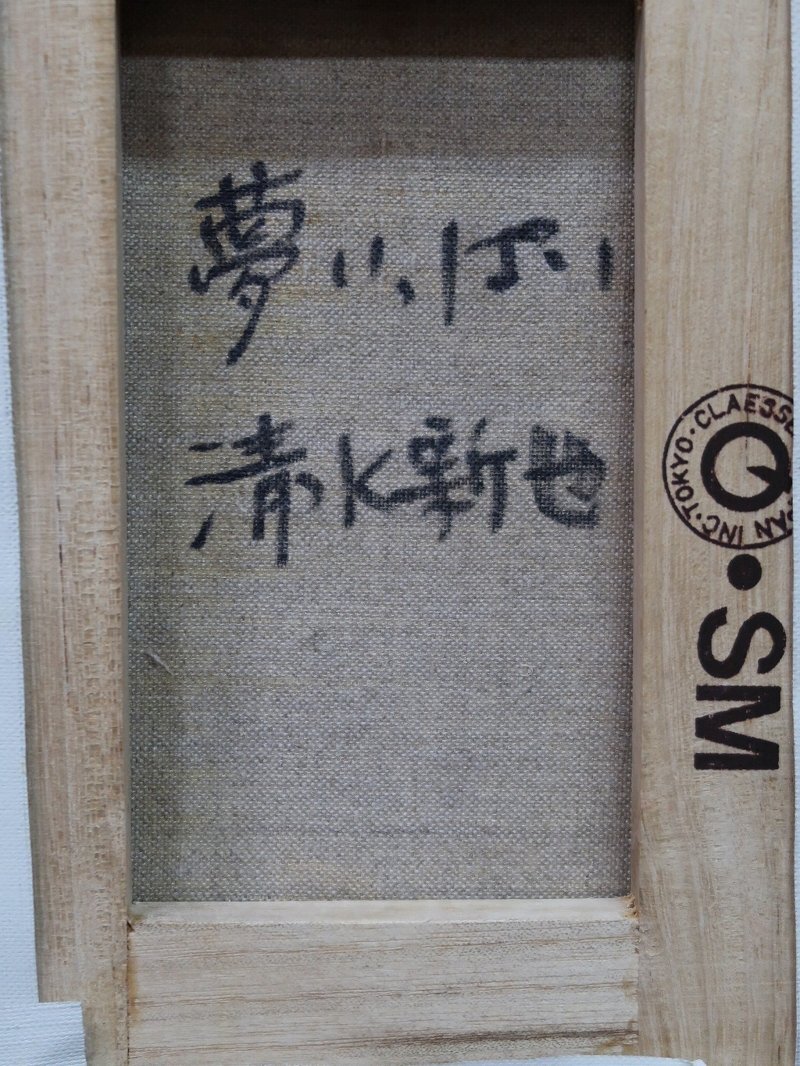 夢いっぱい
清水新也
TOKYO・CLAESSE
PAN INC
・SM